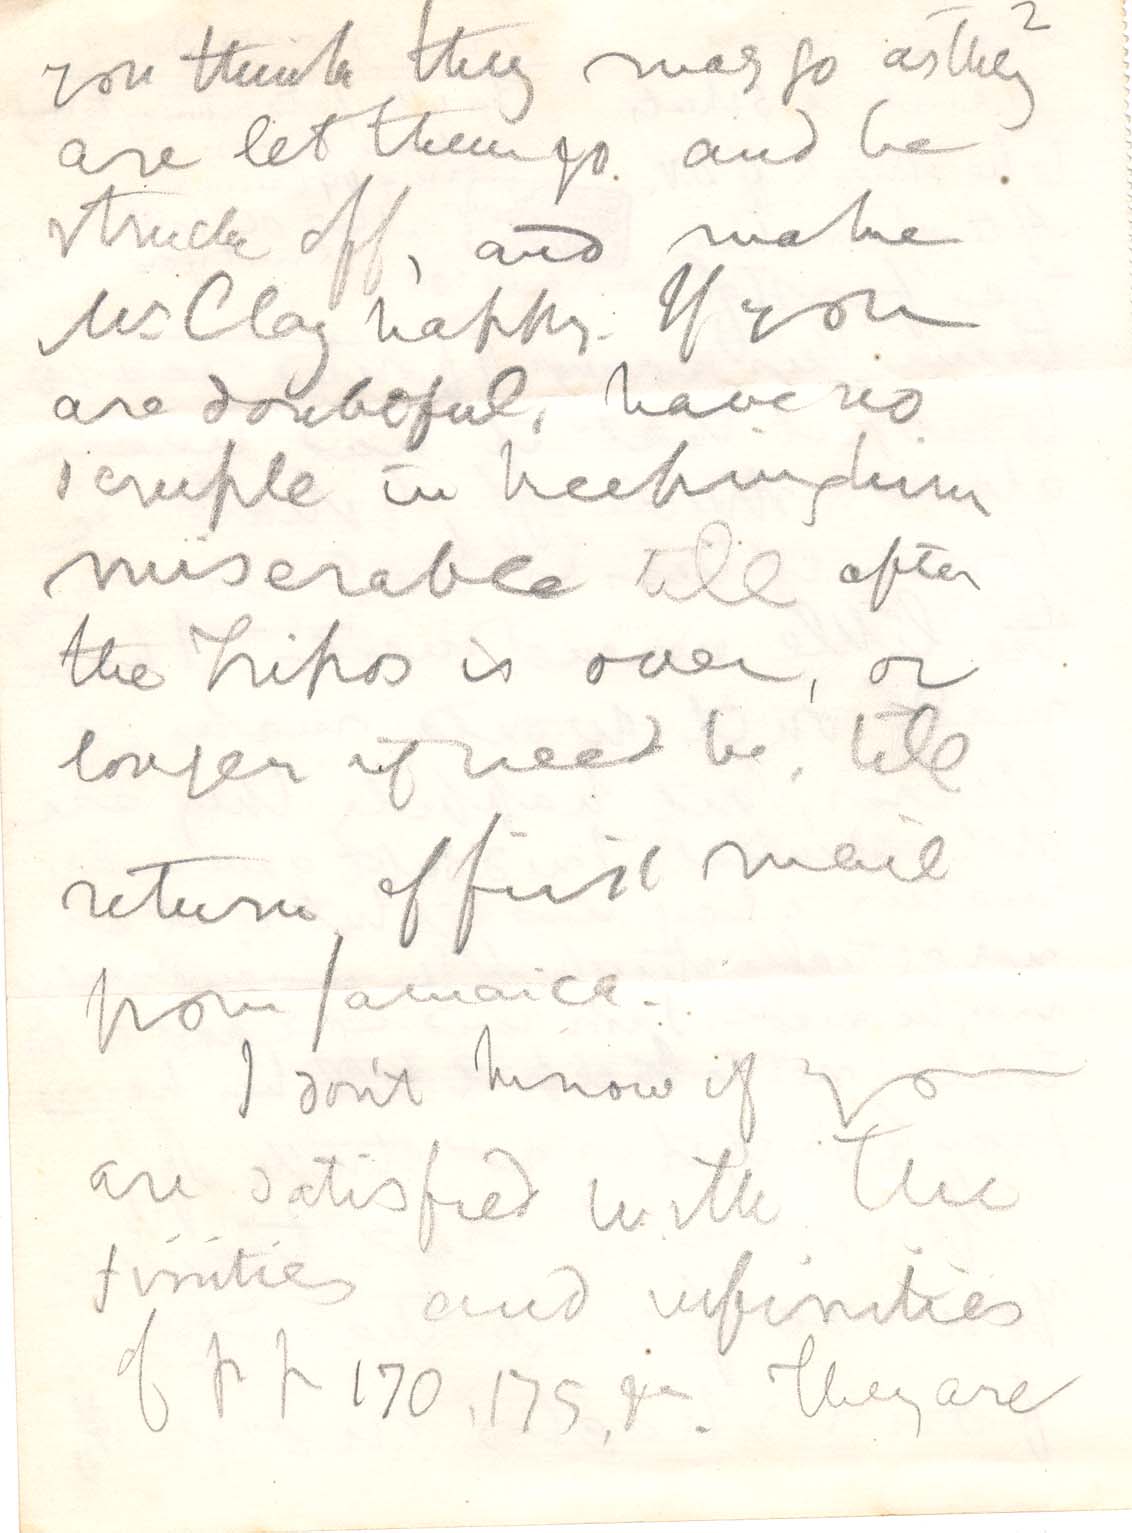 2
you think they may go as they
are let them go and be
struck off, and make
Mr Clay happy. If you
are doubtful, have no
scruple in keeping him
miserable till after
the Tripos is over, or
longer if need be, till
return of first mail
from Jamaica.
I don't know if you
are satisfied with the
finities and infinities
of pp 170, 175, &c. They are